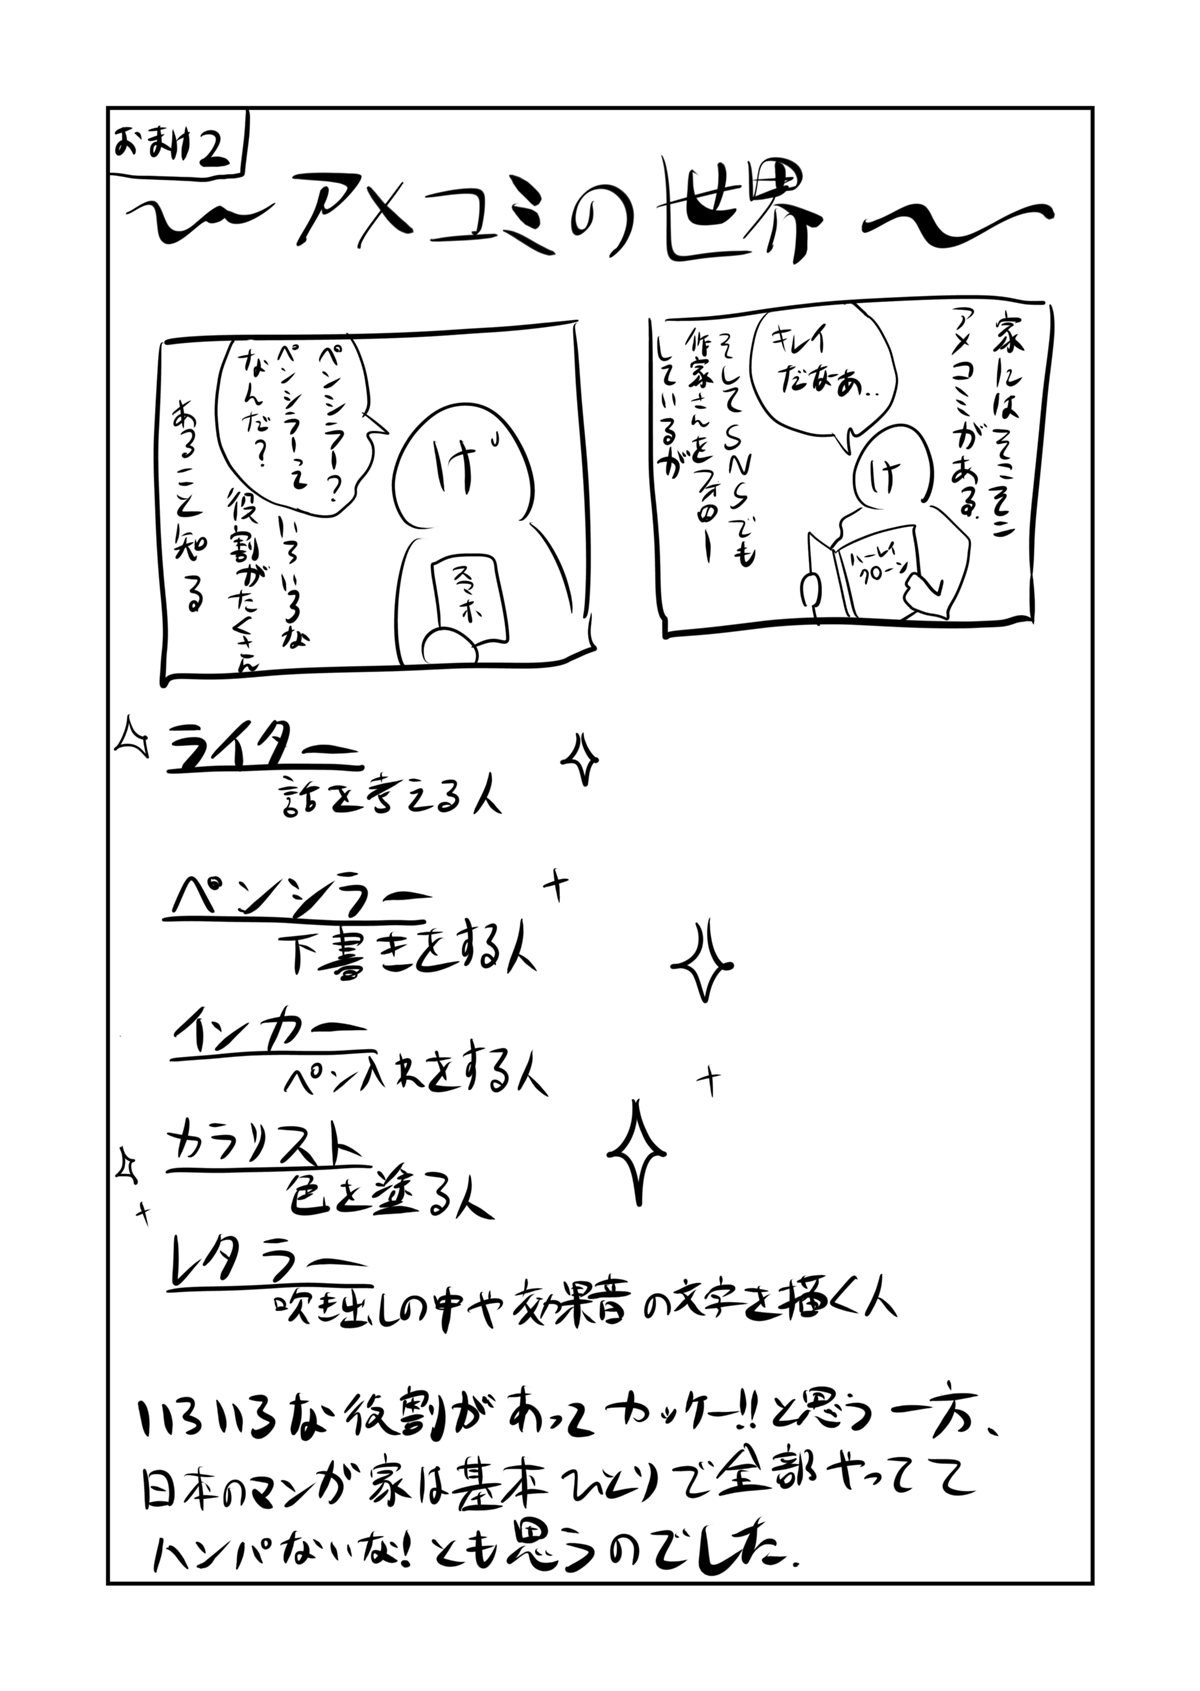 おまけ2
〜アメコミの世界〜
家にはそこそこ
アメコミがある.
キレイ
だなーあ..
け
ハーレイ
クローン
そしてSNSでも
作家さんをフォロー
しているが
ペンシラー?
ペンシラーって
なんだ?
け
スマホ
いろいろな
役割がたくさん
あること知る
ライター
話を考える人
ペンシラー
下書きをする人
インカー
ペン入れをする人
カラリスト
色を塗る人
レタラー
吹き出しの中や効果音の文字を描く人
いろいろな役割があってカッケー!!と思う一方、
日本のマンガ家は基本ひとりで全部やってて
ハンパないな!とも思うのでした.